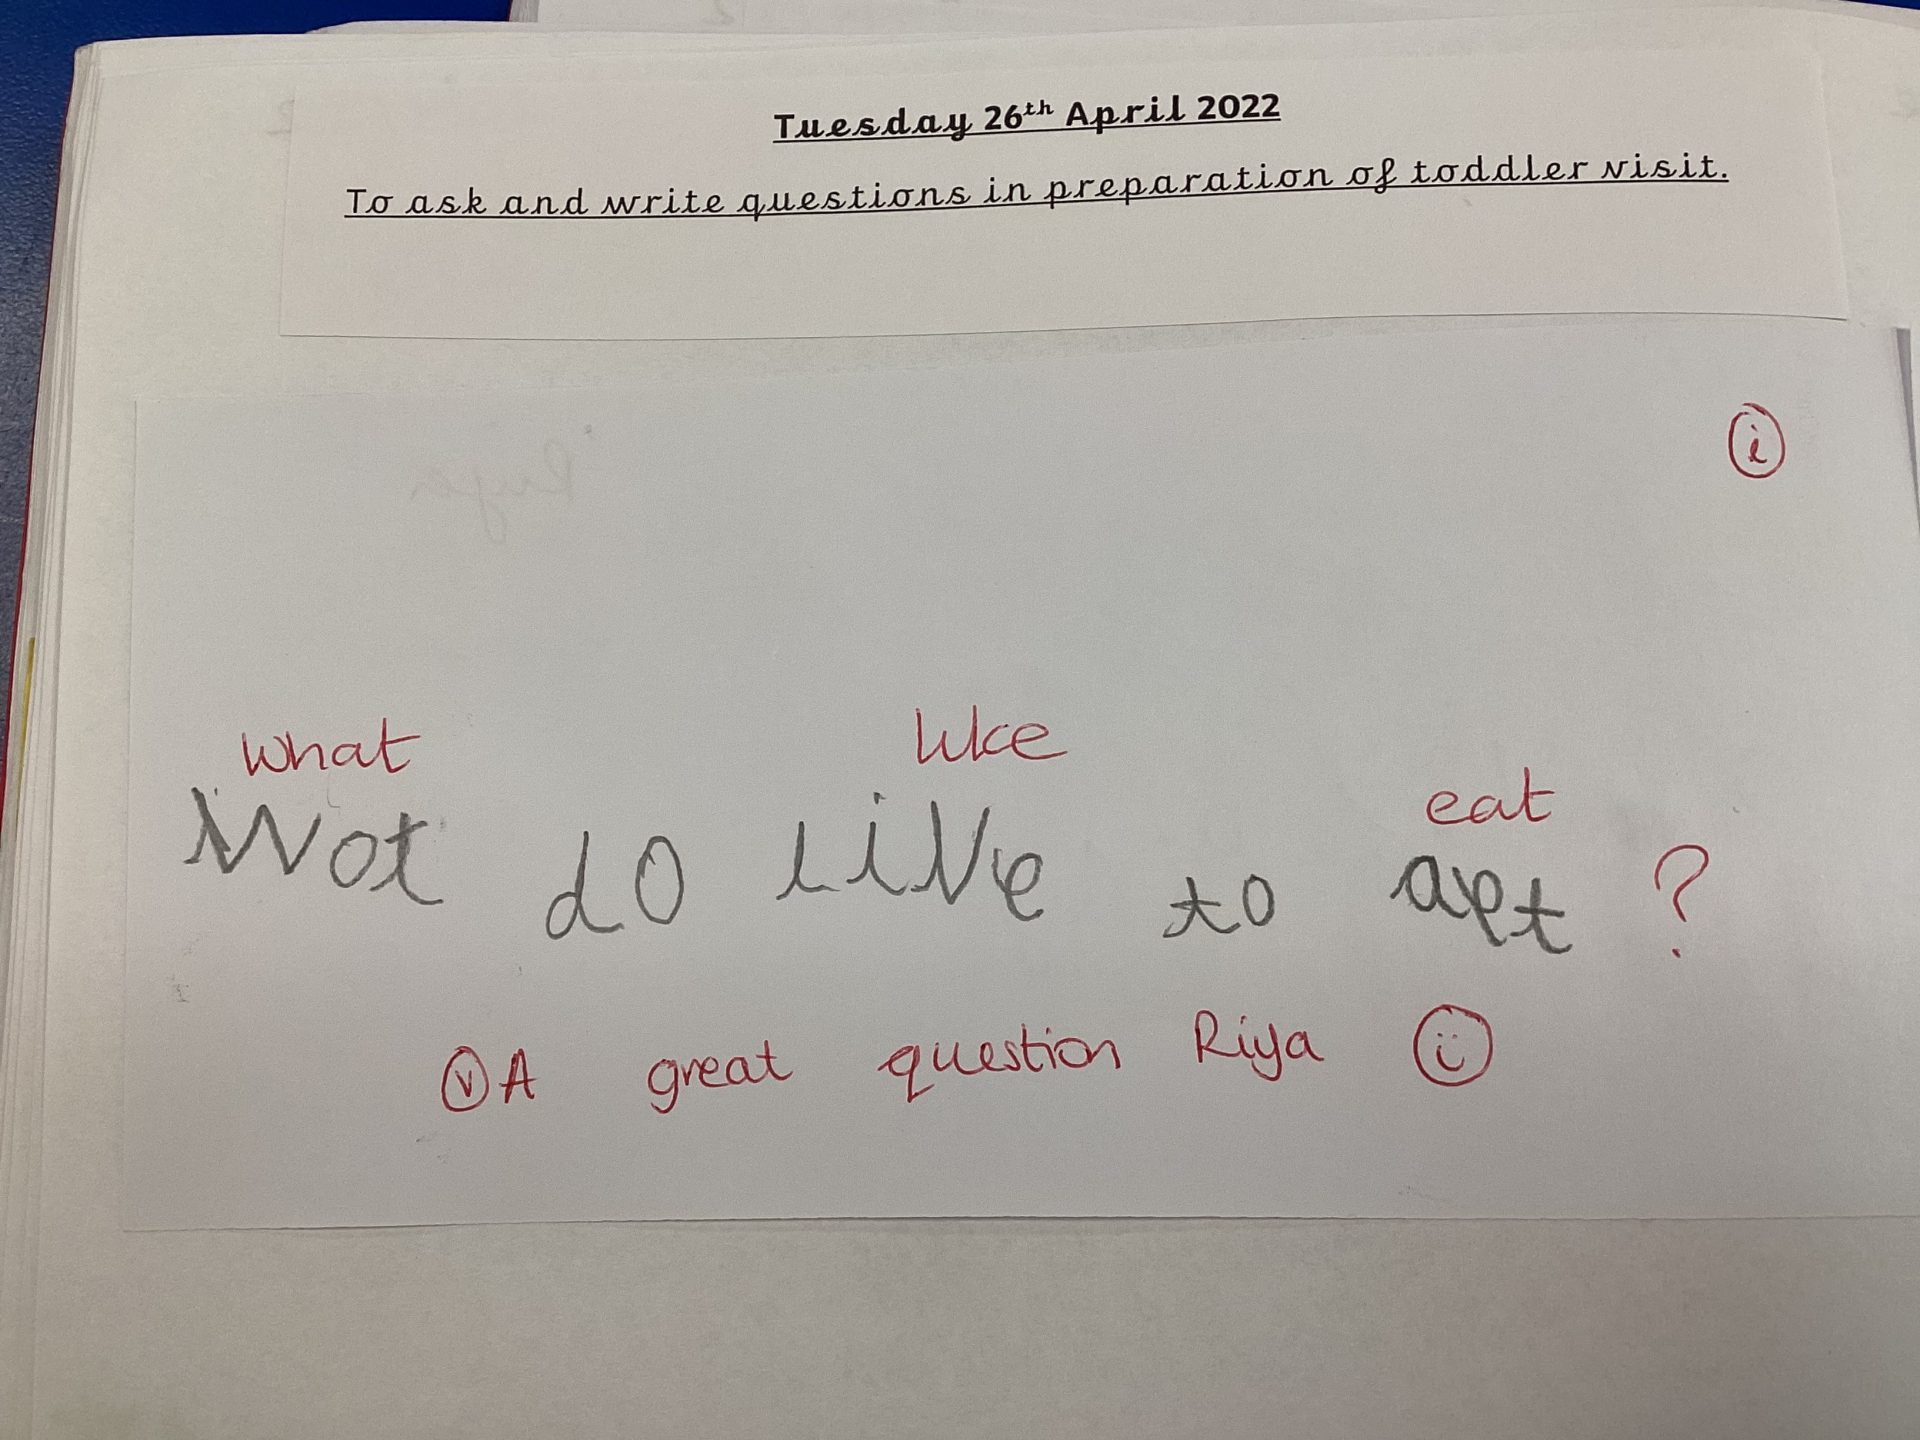 Tuesday 26th April 2022
To ask and write questions in preparation of toddler visit.
i
what like eat
Wot do live to aet ?
v A great question Riya